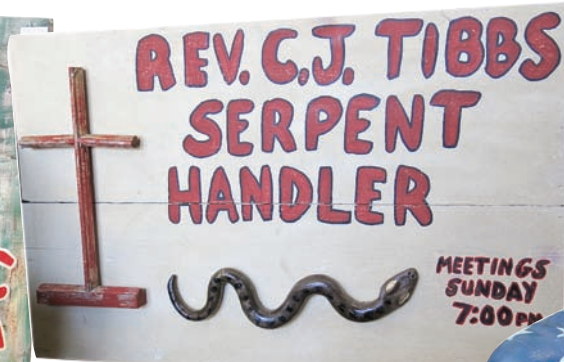 REV. C.J. TIBBS
SERPENT
HANDLER
MEETINGS
SUNDAY
7:00 PM